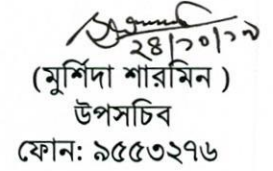 ২৪/১০/১৭
(মুর্শিদা শারমিন )
উপসচিব
ফোন: ৯৫৫৩২৭৬